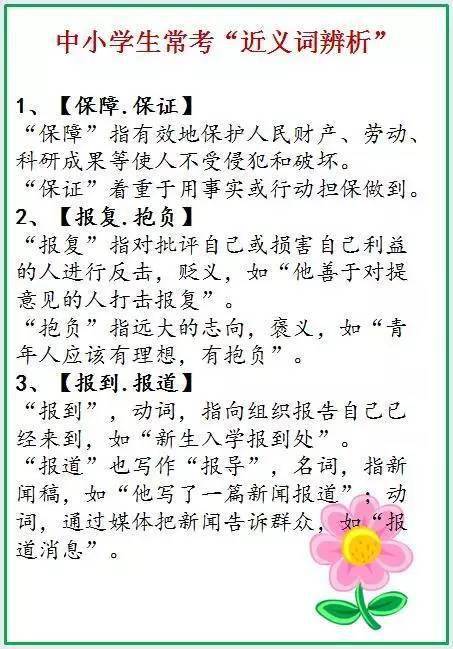 中小学生常考“近义词辨析”
1、【保障.保证】
“保障”指有效地保护人民财产、劳动、
科研成果等使人不受侵犯和破坏。
“保证”着重于用事实或行动担保做到。
2、【报复.抱负】
“报复”指对批评自己或损害自己利益
的人进行反击，贬义，如“他善于对提
意见的人打击报复”。
“抱负”指远大的志向，褒义，如“青
年人应该有理想，有抱负”。
3、【报到.报道】
“报到”，动词，指向组织报告自己已
经来到，如“新生入学报到处”。
“报道”也写作“报导”，名词，指新
闻稿，如“他写了一篇新闻报道”；动
词，通过媒体把新闻告诉群众，如“报
道消息”。